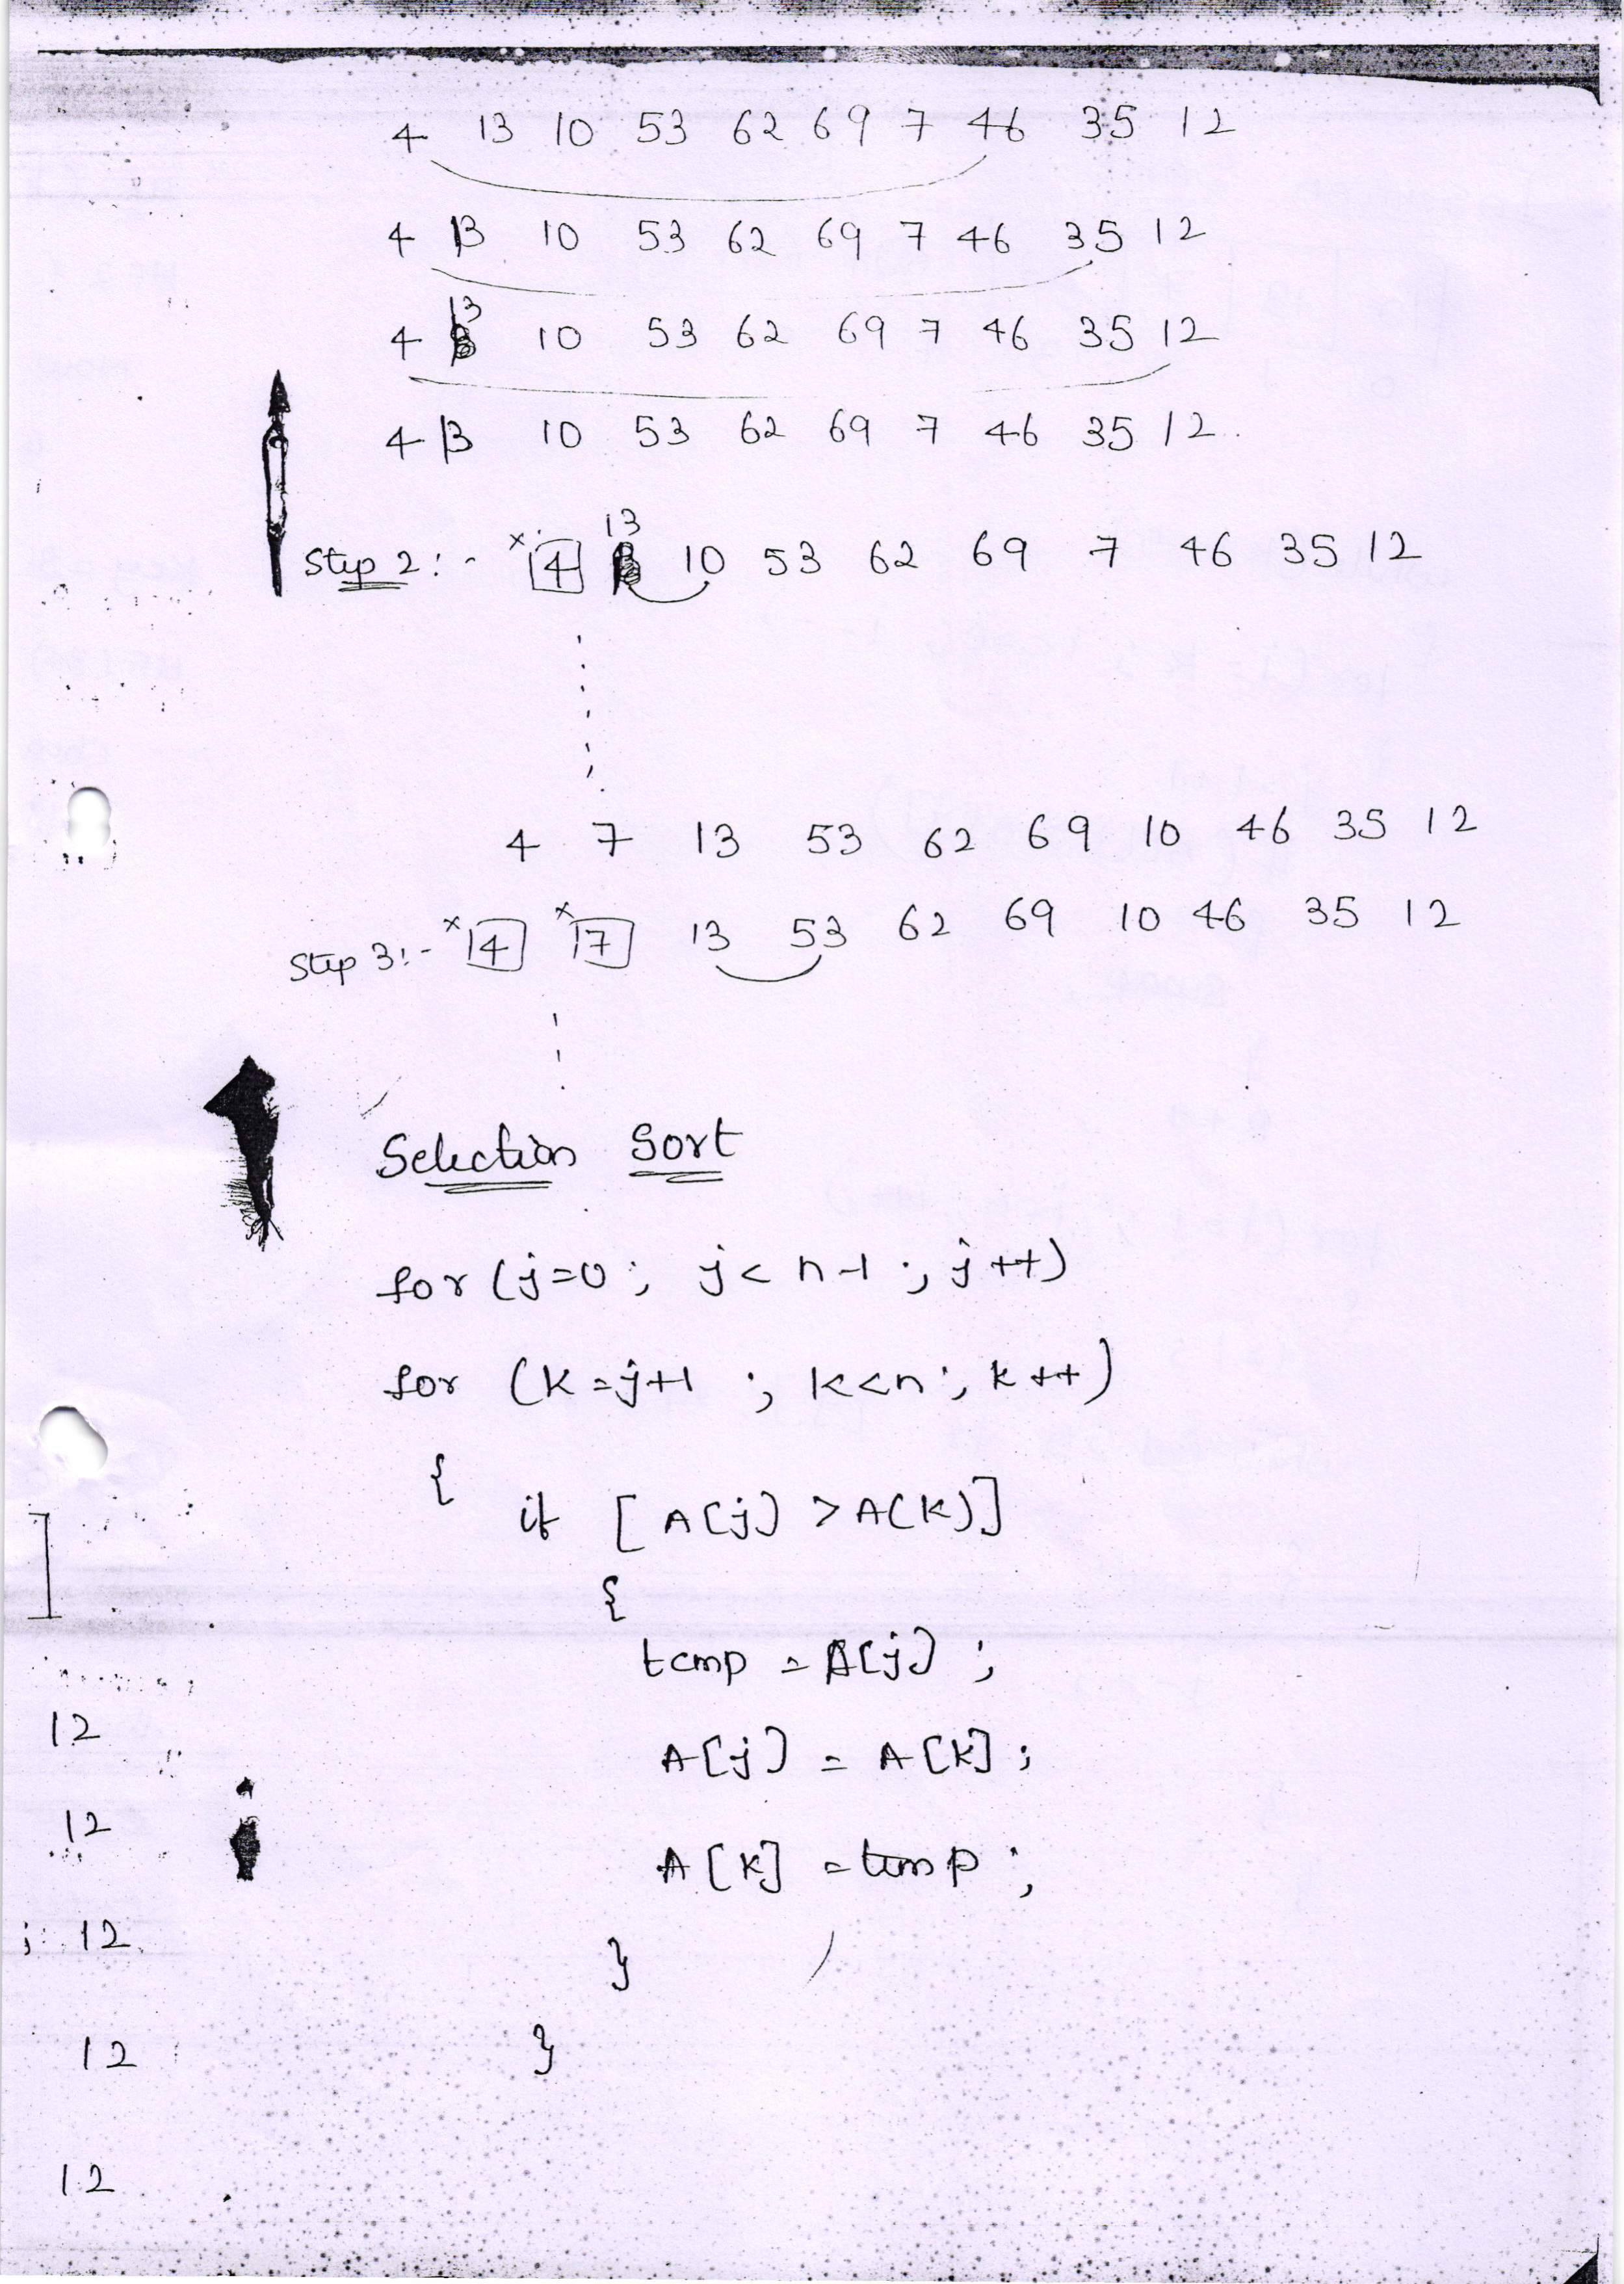 4 13 10 53 62 69 7 46 35 12
4 13 10 53 62 69 7 46 35 12
4 13 10 53 62 69 7 46 35 12
4 13 10 53 62 69 7 46 35 12
Step 2:- x 4 13 10 53 62 69 7 46 35 12
4 7 13 53 62 69 10 46 35 12
Step 3:- x 4 x 7 13 53 62 69 10 46 35 12
Selection Sort
for (j=0; j<n-1; j++)
for (k=j+1; k<n; k++)
{
if [A[j] > A[k]]
{
temp = A[j];
12
A[j] = A[k];
12
A[k] = temp;
j 12
}
12
}
12